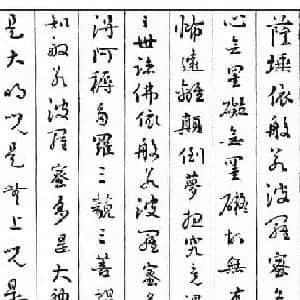 薩埵依般若波羅蜜多
心无罣礙无罣礙故無有
怖遠離顛倒夢想究竟涅
三世諸佛依般若波羅蜜多
得阿耨多羅三藐三菩提
知般若波羅蜜多是大神
是大明咒是無上咒是